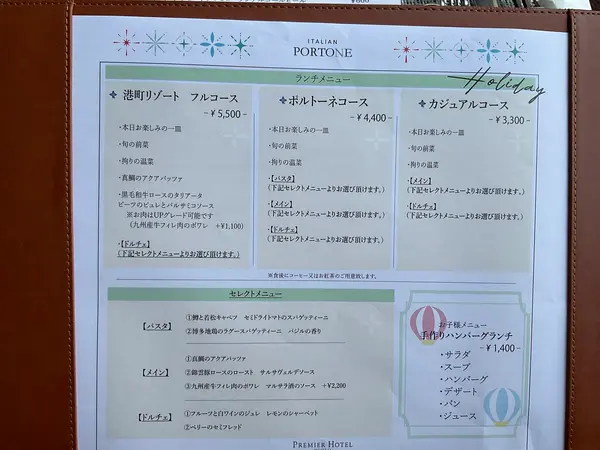 ¥600
ITALIAN
PORTONE
ランチメニュー
Holiday
港町リゾート フルコース
-¥5,500-
・本日お楽しみの一皿
・旬の前菜
・拘りの温菜
・真鯛のアクアパッツァ
・黒毛和牛ロースのタリアータ
ビーツのピュレとバルサミコソース
※お肉はUPグレード可能です
(九州産牛フィレ肉のポワレ +¥1,100)
・【ドルチェ】
(下記セレクトメニューよりお選び頂けます。)
ポルトーネコース
-¥4,400-
・本日お楽しみの一皿
・旬の前菜
・拘りの温菜
・【パスタ】
(下記セレクトメニューよりお選び頂けます。)
・【メイン】
(下記セレクトメニューよりお選び頂けます。)
・【ドルチェ】
(下記セレクトメニューよりお選び頂けます。)
カジュアルコース
-¥3,300-
・本日お楽しみの一皿
・旬の前菜
・拘りの温菜
・【メイン】
(下記セレクトメニューよりお選び頂けます。)
・【ドルチェ】
(下記セレクトメニューよりお選び頂けます。)
※食後にコーヒー又はお紅茶のご用意致します。
セレクトメニュー
【パスタ】
①鱒と若松キャベツ セミドライトマトのスパゲッティーニ
②博多地鶏のラグースパゲッティーニ バジルの香り
【メイン】
①真鯛のアクアパッツァ
②錦雲豚ロースのロースト サルサヴェルデソース
③九州産牛フィレ肉のポワレ マルサラ酒のソース +¥2,200
【ドルチェ】
①フルーツと白ワインのジュレ レモンのシャーベット
②ベリーのセミフレッド
お子様メニュー
手作りハンバーグランチ
-¥1,400-
・サラダ
・スープ
・ハンバーグ
・デザート
・パン
・ジュース
PREMIER HOTEL